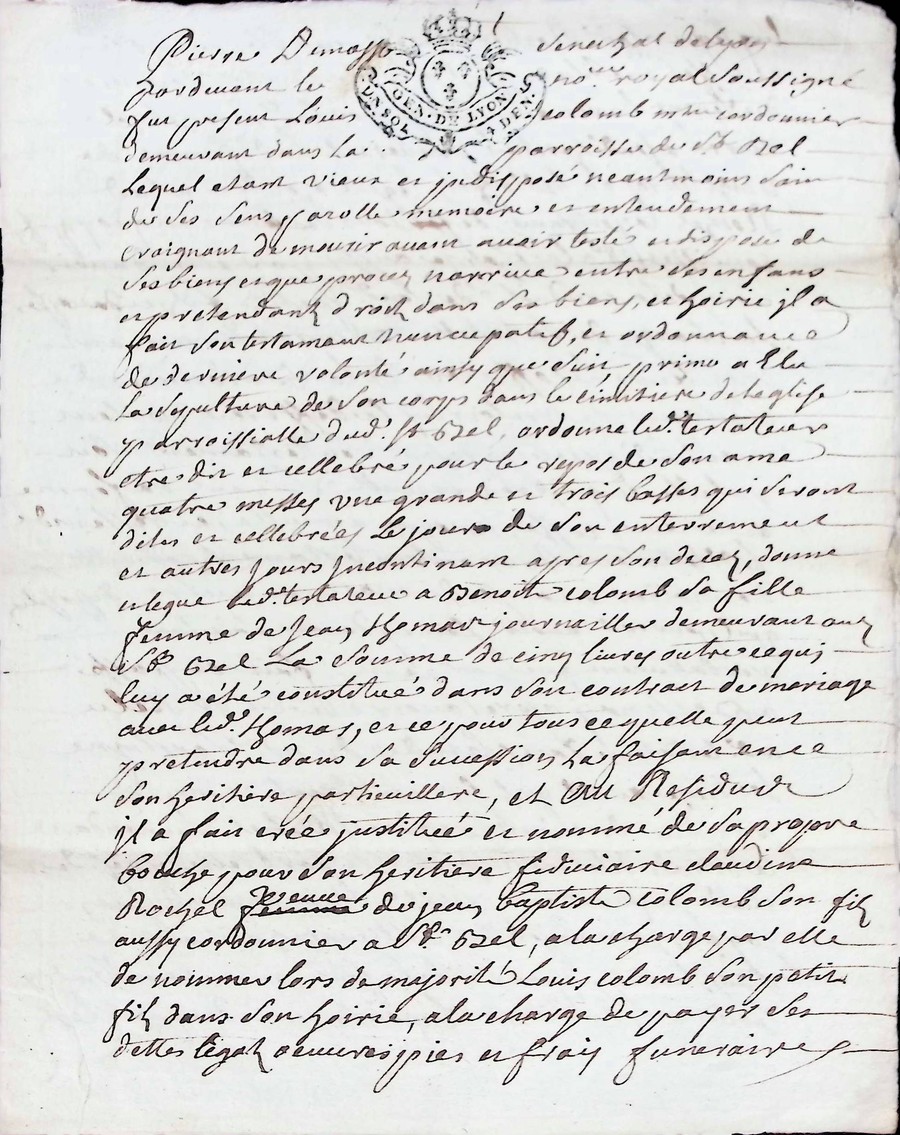 Pierre Dumas senechal de lyon
Pardevant le no.re royal soussigné
fut present Louis colomb m.tre cordonnier
demeurant dans la parroisse de St Bel
Lequel etant vieux et jndisposé neantmoins sain
de ses sens parolle memoire et entendement
craignant de mourir avant avoir testé et disposé de
ses biens et que proces narrive entre ses enfans
et pretendant droit dans ses biens, et hoirie jl a
fait son testament nuncupatif, et ordonnance
de derniere volonté ainsy que suit primo a Elu
La sepulture de son corps dans le cimitiere de leglise
parroissialle dud. St Bel, ordonne led.t testateur
etre dit et cellebré pour le repos de son ame
quatre messes une grande et trois basses qui seront
dites et cellebrées le jour de son enterrement
et autres jours jncontinant apres son deces, donne
et legue led.t testateur a Benoite colomb sa fille
femme de Jean Thomas journaillier demeurant aud
St Bel La somme de cinq livres outre ce qui
luy a été constitué dans son contract de mariage
avec led. Thomas, et ce pour tous ce quelle peut
pretendre dans sa succession La faisant en ce
son heritiere particuillere, et Au Residude
jl a fait créé jnstitué et nommé de sa propre
bouche pour son heritiere fiduciaire claudine
Rochel femme veuve de jean baptiste colomb son fils
aussy cordonnier a St Bel, a la charge par elle
de nommer lors de majorité Louis colomb son petit
fils dans son hoirie, a la charge de payer ses
dettes legat oeuvres pies et frais funeraires
GEN. DE LYON
UN SOL 4 DEN.